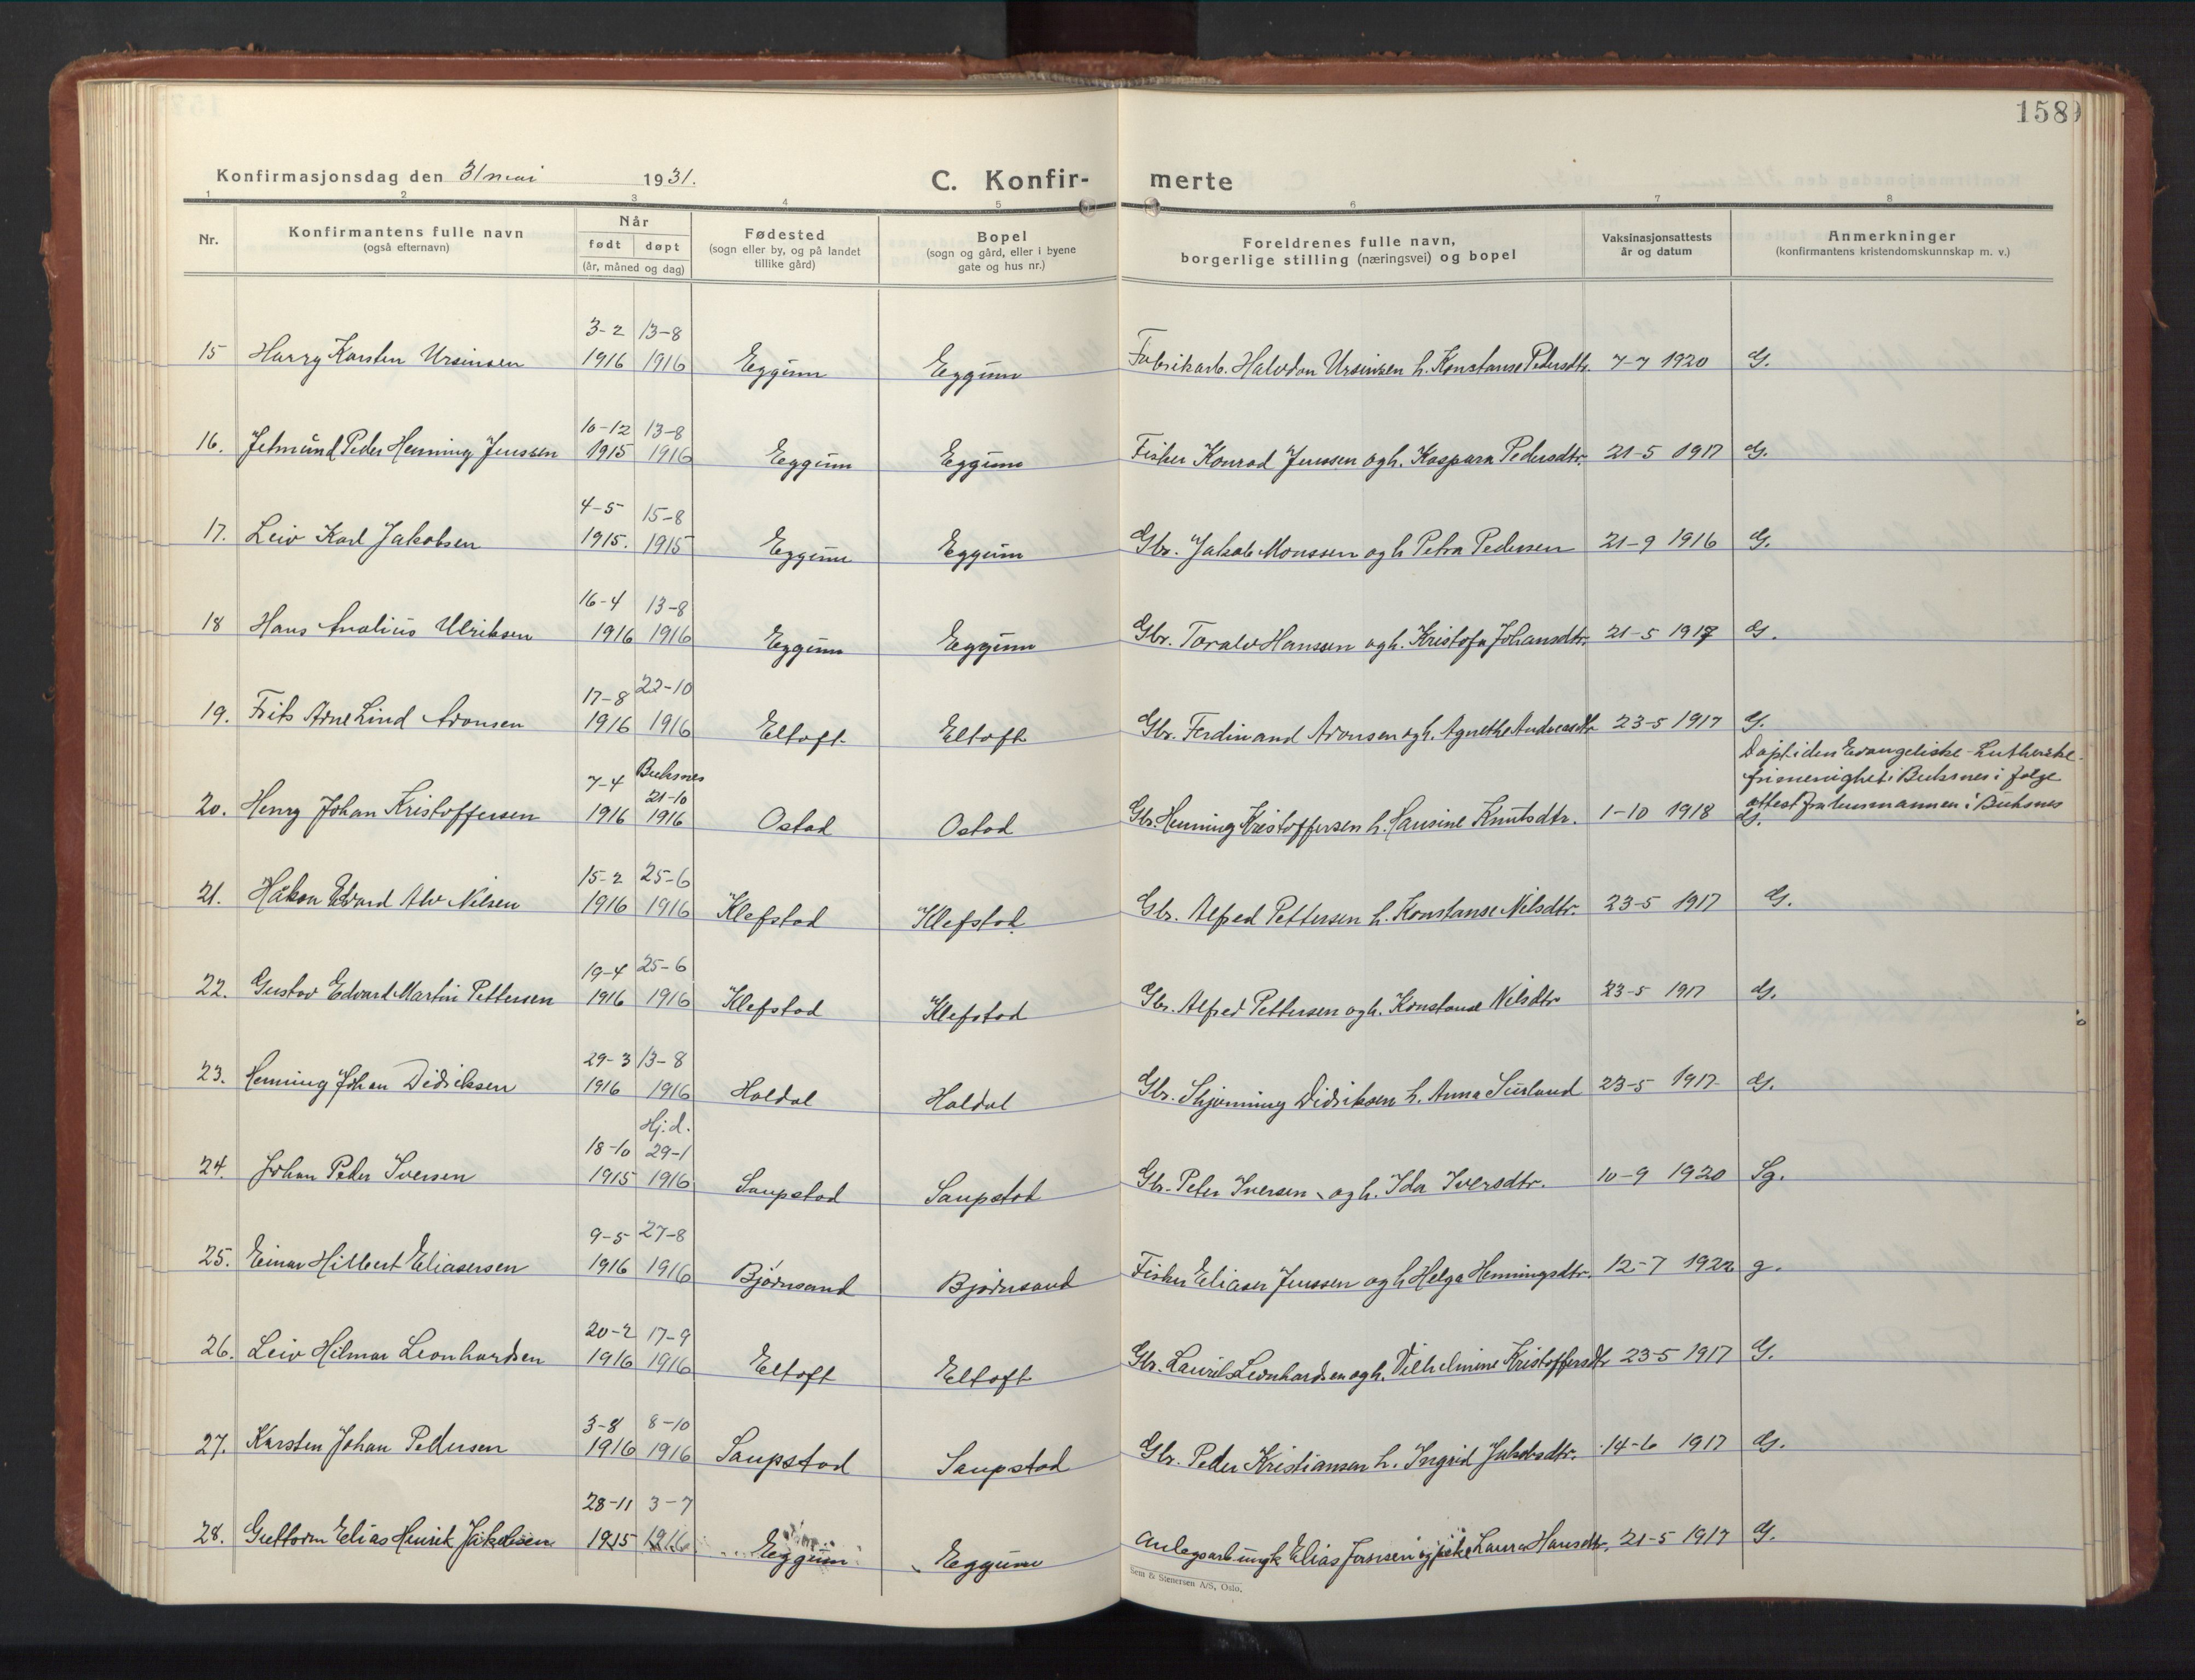 158
Konfirmasjonsdag den 31 mai 1931.
C. Konfir- merte
1 2 3 4 5 6 7 8
Nr.
Konfirmantens fulle navn
(også efternavn)
Når
født døpt
(år, måned og dag)
Fødested
(sogn eller by, og på landet
tillike gård)
Bopel
(sogn og gård, eller i byene
gate og hus nr.)
Foreldrenes fulle navn,
borgerlige stilling (næringsvei) og bopel
Vaksinasjonsattests
år og datum
Anmerkninger
(konfirmantens kristendomskunnskap m. v.)
3-2 13-8
15 Harry Karsten Ursinsen 1916 1916 Eggum Eggum Fabrikarb. Halvdan Ursinsen h. Konstanse Pedersdtr. 7-7 1920 G.
10-12 13-8
16. Jetmund Peder Henning Jenssen 1915 1916 Eggum Eggum Fisker Konrad Jenssen og h. Kaspara Pedersdtr. 21-5 1917 G.
4-5 15-8
17. Leiv Karl Jakobsen 1915. 1915 Eggum Eggum Gbr. Jakob Monssen og h Petra Pedersen 21-9 1916 G.
16-4 13-8
18 Hans Analius Ulriksen 1916 1916 Eggum Eggum Gbr. Toralv Hanssen og h. Kristofa Johansdtr. 21-5 1917 G.
17-8 22-10
19. Frits Arne Lind Aronsen 1916 1916 Eltoft Eltoft Gbr. Ferdinand Aronsen og h. Agnethe Andreasdtr 23-5 1917 G.
Døpt i den Evangeliske-Lutherske
frimenighet i Buksnes i følge
attest fra lensmannen i Buksnes
7-4 Buksnes
21-10
20. Henry Johan Kristoffersen 1916 1916 Ostad Ostad Gbr. Henning Kristoffersen h. Hansine Knutsdtr. 1-10 1918 G.
15-2 25-6
21. Håkon Edvard Alv Nilsen 1916 1916 Klefstad Klefstad Gbr. Alfred Pettersen h. Konstanse Nilsdtr. 23-5 1917 G.
19-4 25-6
22. Gustav Edvart Martin Pettersen 1916 1916 Klefstad Klefstad Gbr. Alfred Pettersen og h. Konstanse Nilsdtr 23-5 1917 G.
29-3 13-8
23. Henning Johan Didriksen 1916 1916 Holdal Holdal Gbr. Skjønning Didriksen h. Anna Surland 23-5 1917 G.
Hj.d.
18-10 29-1
24. Johan Peder Iversen 1915 1916 Saupstad Saupstad Gbr. Peter Iversen og h. Ida Iversdtr. 10-9 1920 Sg.
9-5 27-8
25. Einar Hilbert Eliasersen 1916 1916 Bjørnsand Bjørnsand Fisker Eliaser Jenssen og h Helga Henningsdtr. 12-7 1922 g.
20-2 17-9
26. Leiv Hilmar Leonhardsen 1916 1916 Eltoft Eltoft Gbr. Laurits Leonhardsen og h. Vilhelmine Kristoffersdtr 23-5 1917 G.
3-8 8-10
27. Karsten Johan Pedersen 1916 1916 Saupstad Saupstad Gbr. Peder Kristiansen h. Ingrid Jakobsdtr. 14-6 1917 G.
28-11 3-7
28. Guttorm Elias Henrik Jakobsen 1915 1916 Eggum Eggum Anlegsarb ungk Elias og pike Laura Hansdtr. 21-5 1917 G.
Sem & Stenersen A/S, Oslo.